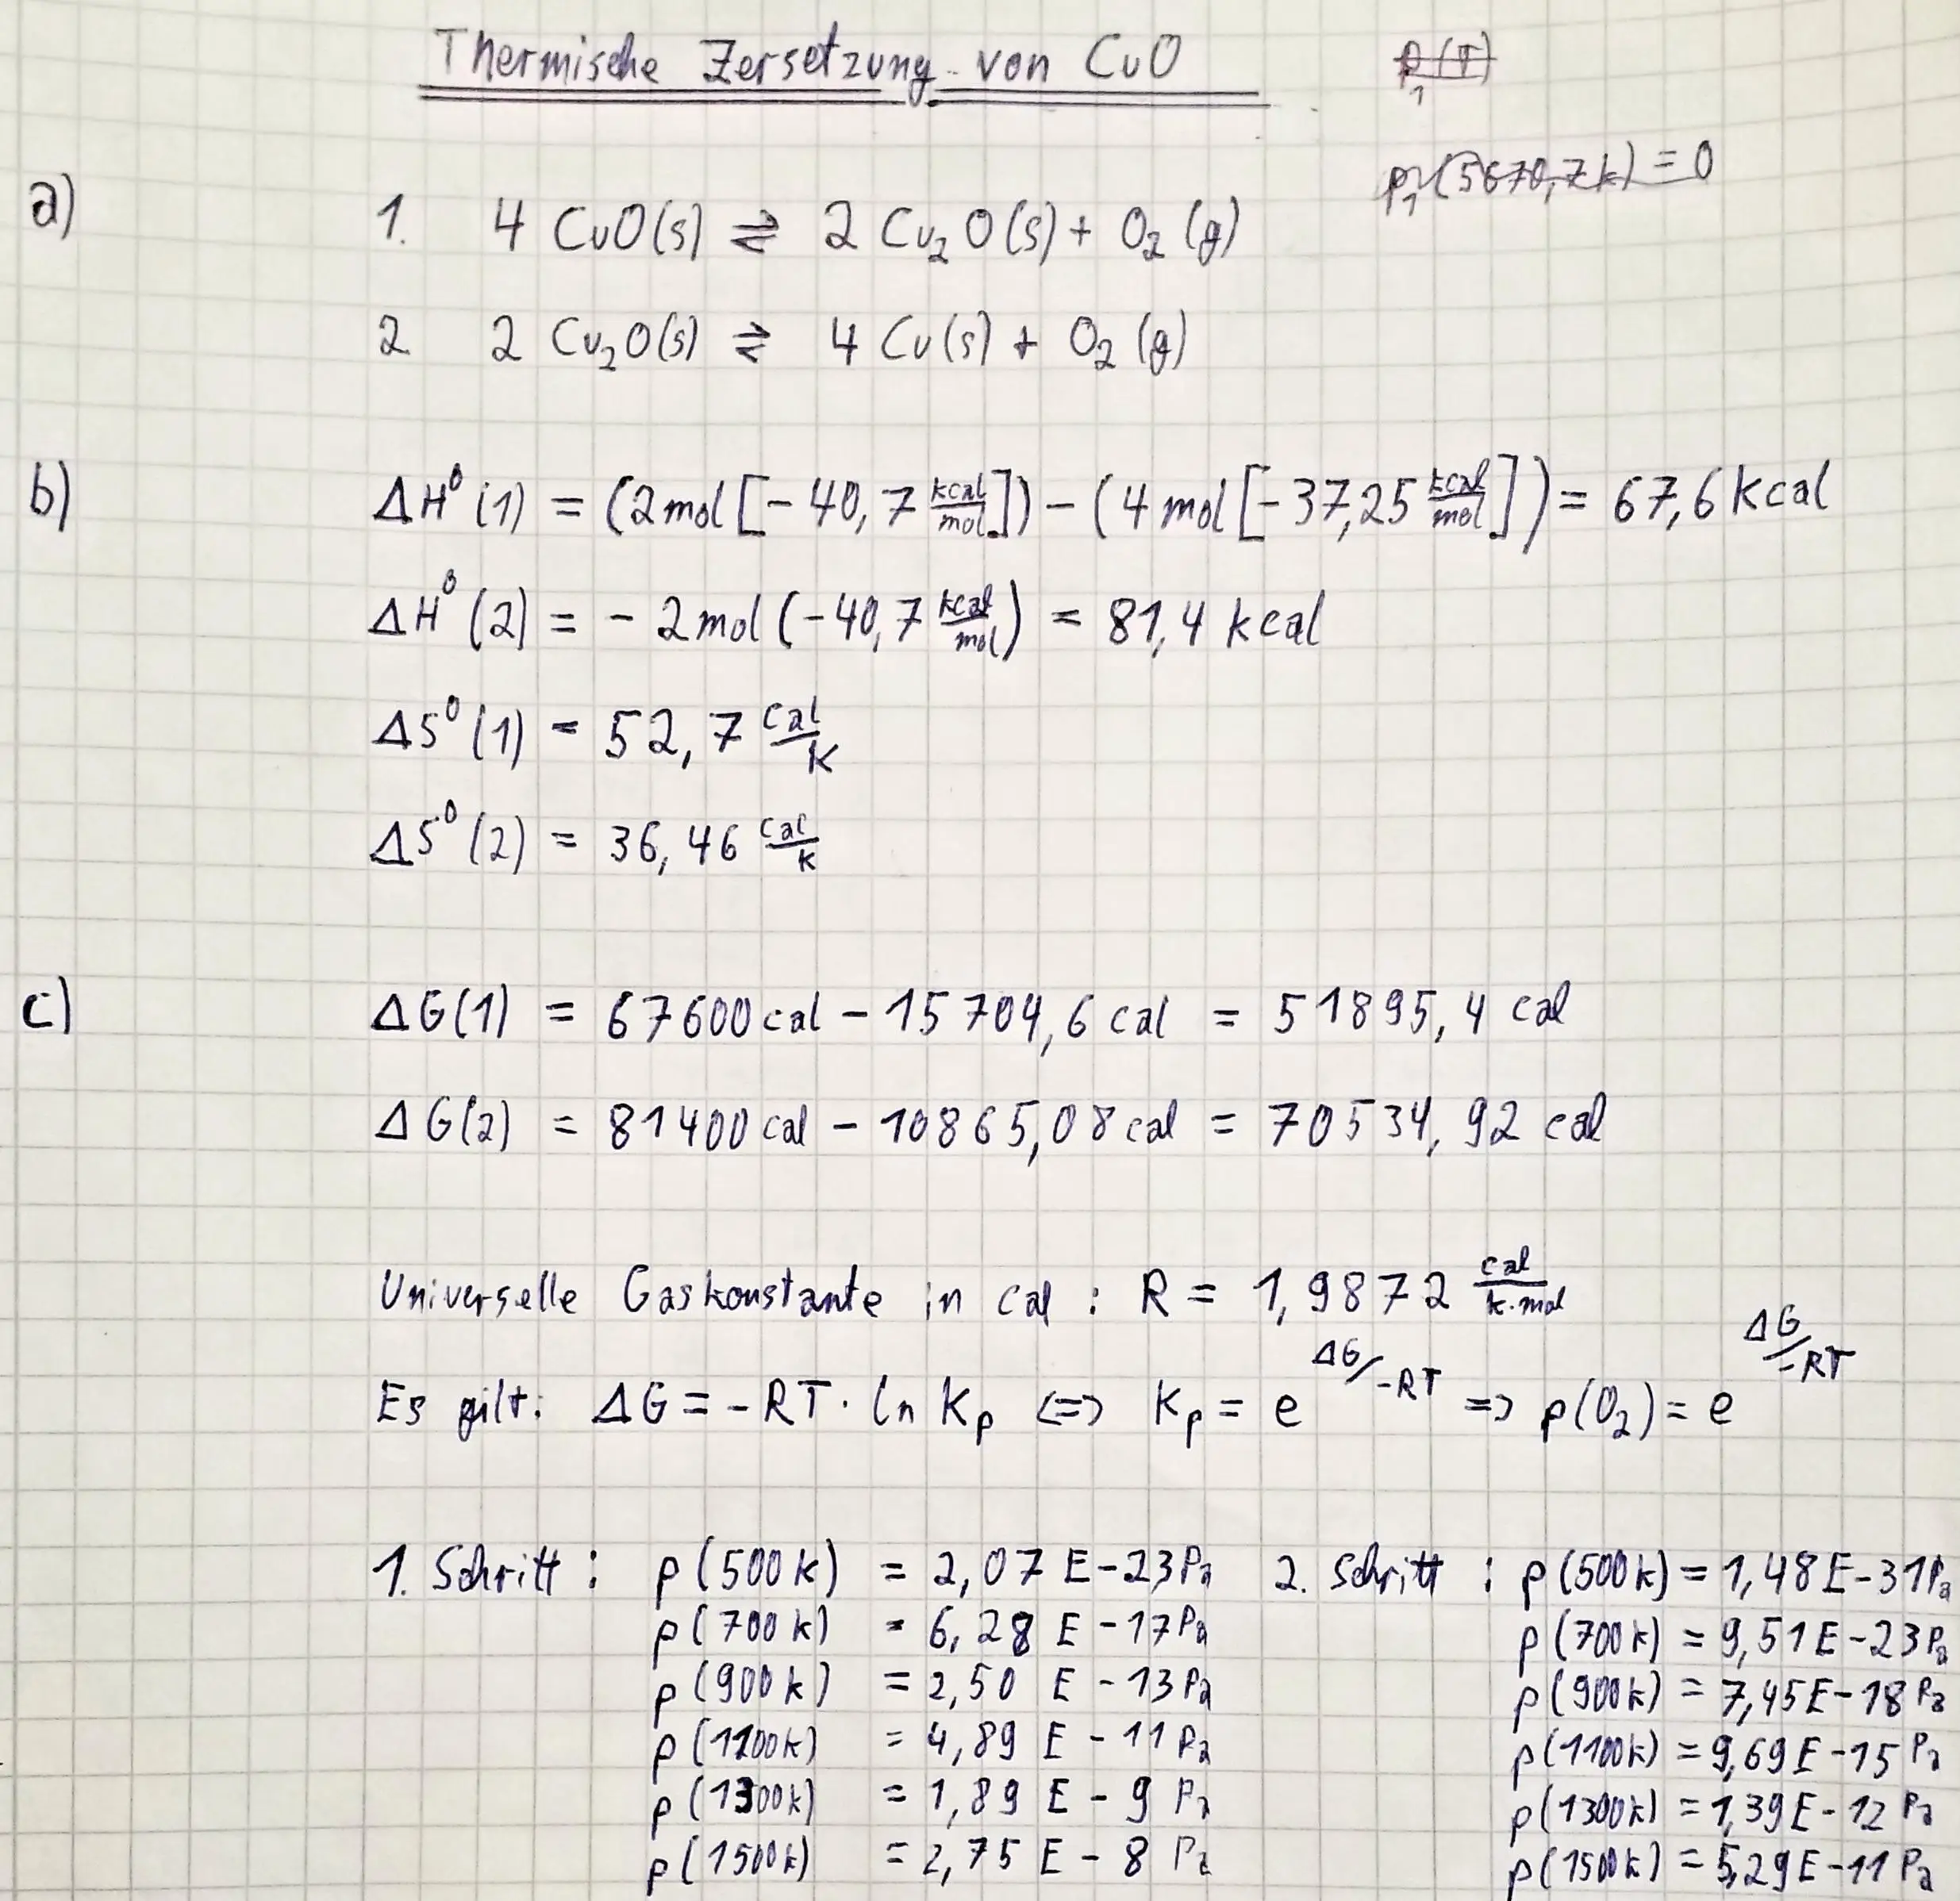 Thermische Zersetzung von CuO
p₁(T)
p₁(5670,7k) = 0
a) 1. 4 CuO(s) ⇌ 2 Cu₂O(s) + O₂(g)
2 2 Cu₂O(s) ⇌ 4 Cu(s) + O₂(g)
b) ΔH⁰(1) = (2mol[-40,7 kcal/mol]) - (4mol[-37,25 kcal/mol]) = 67,6 kcal
ΔH⁰(2) = - 2mol(-40,7 kcal/mol) = 81,4 kcal
ΔS⁰(1) = 52,7 cal/K
ΔS⁰(2) = 36,46 cal/K
c) ΔG(1) = 67600cal - 15704,6 cal = 51895,4 cal
ΔG(2) = 81400cal - 10865,08cal = 70534,92 cal
Universelle Gaskonstante in cal : R = 1,9872 cal/k·mol
Es gilt: ΔG = -RT · ln Kp <=> Kp = e^(ΔG/-RT) => p(O₂) = e^(ΔG/-RT)
1. Schritt : p(500k) = 2,07 E-23Pa 2. Schritt : p(500k) = 1,48E-31Pa
p(700k) = 6,28 E-17Pa p(700k) = 9,51E-23Pa
p(900k) = 2,50 E-13Pa p(900k) = 7,45E-18 Pa
p(1100k) = 4,89 E-11 Pa p(1100k) = 9,69E-15 Pa
p(1300k) = 1,89 E-9 Pa p(1300k) = 1,39E-12 Pa
p(1500k) = 2,75 E-8 Pa p(1500k) = 5,29E-11 Pa